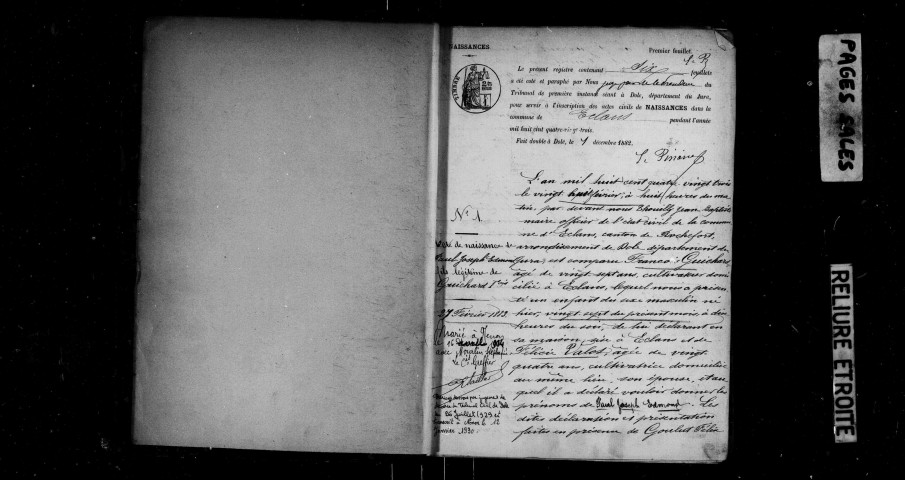 NAISSANCES
Premier feuillet.
TIMBRE
Le présent registre contenant Dix feuillets
a été coté et paraphé par Nous
Tribunal de première instance séant à Dole, département du Jura,
pour servir à l'inscription des actes civils de NAISSANCES dans la
commune de Eclans pendant l'année
mil huit cent quatre-vingt trois
Fait double à Dole, le 1 décembre 1882.
L'an mil huit cent quatre vingt trois
le vingt huit février, à huit heures du ma
tin, par devant nous Jean Baptiste
maire officier de l'état civil de la commu
ne d'Eclans, canton de Rochefort,
arrondissement de Dole département du
Jura, est comparu François Guichard
âgé de vingt sept ans, cultivateur domi
cilié à Eclans, lequel nous a présen
té un enfant du sexe masculin né
hier, vingt sept du présent mois, à dix
heures du soir, de lui déclarant en
sa maison, sise à Eclans et de
Félicie Valot, âgée de vingt
quatre ans, cultivatrice domiciliée
au même lieu, son épouse, et au
quel il a déclaré vouloir donner les
prénoms de Paul Joseph Edmond. Les
dites déclaration et présentation
faites en présence de
N° 1
Acte de naissance de
Paul Joseph Edmond
fils légitime de
Guichard
27 Février 1883
Marié à
le 16 avril
avec
Le Cis Greffier
26 Juillet 1929 et
Janvier 1930
PAGES SALES
RELIURE ETROITE